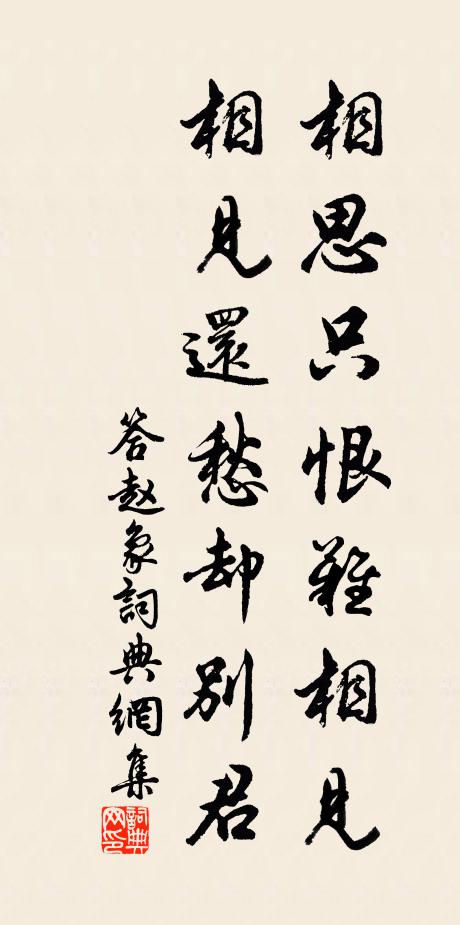 相思只恨難相見
相見還愁却別君
答赵象詞典網集
詞典
网印